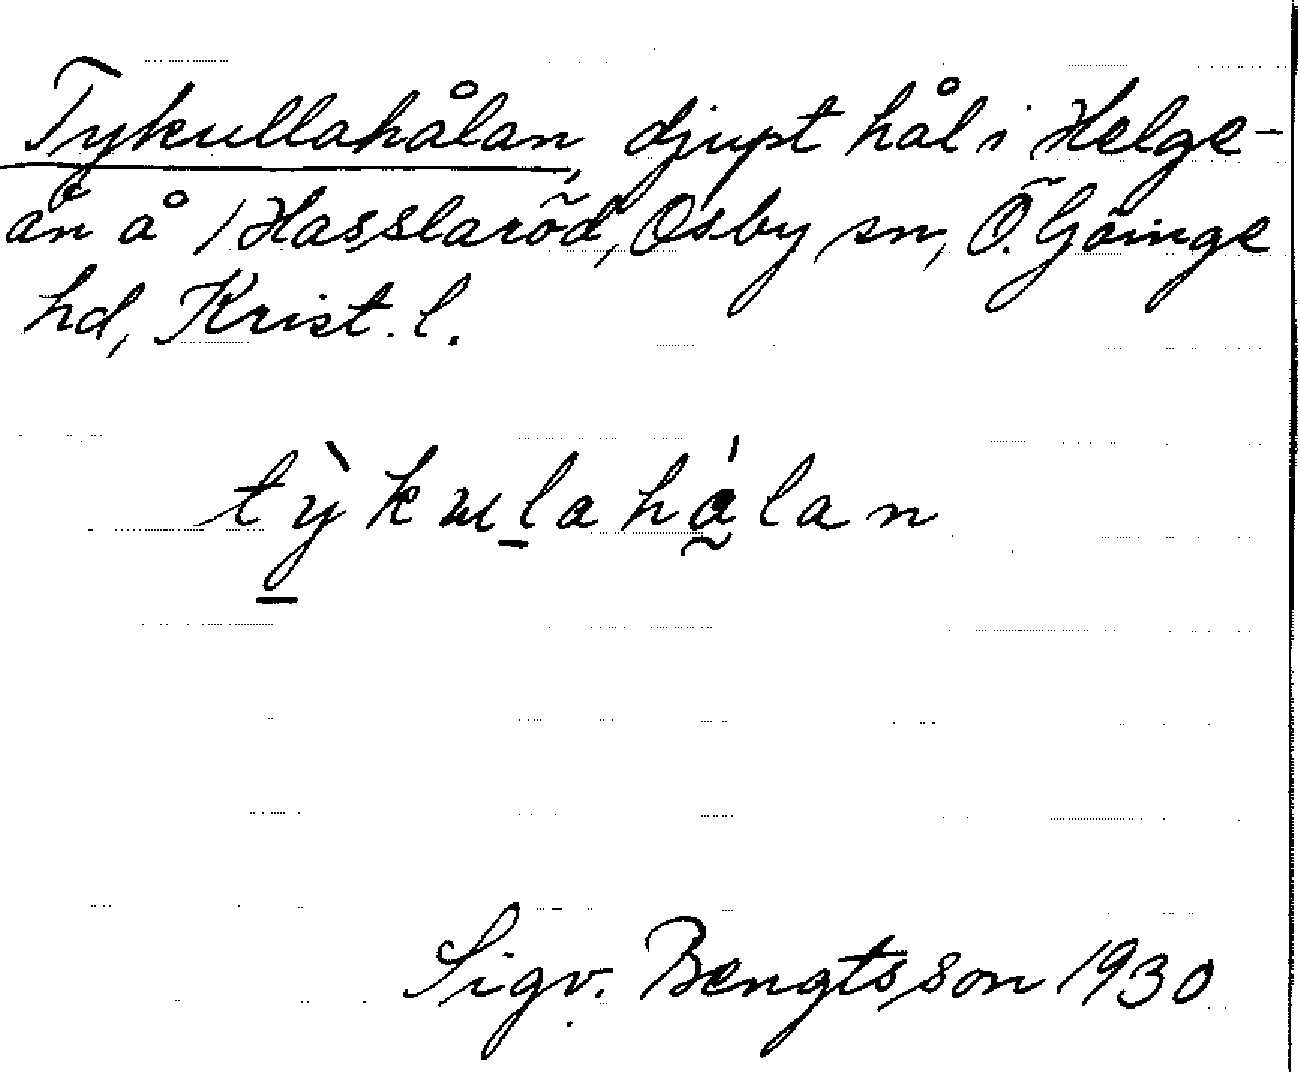 Tykullahålan, djupt hål i Helge-
ån å 1 Hasslaröd, Osby sn, Ö. Göinge
hd, Krist. l.
tỳkulahálan
Sigv. Bengtsson 1930